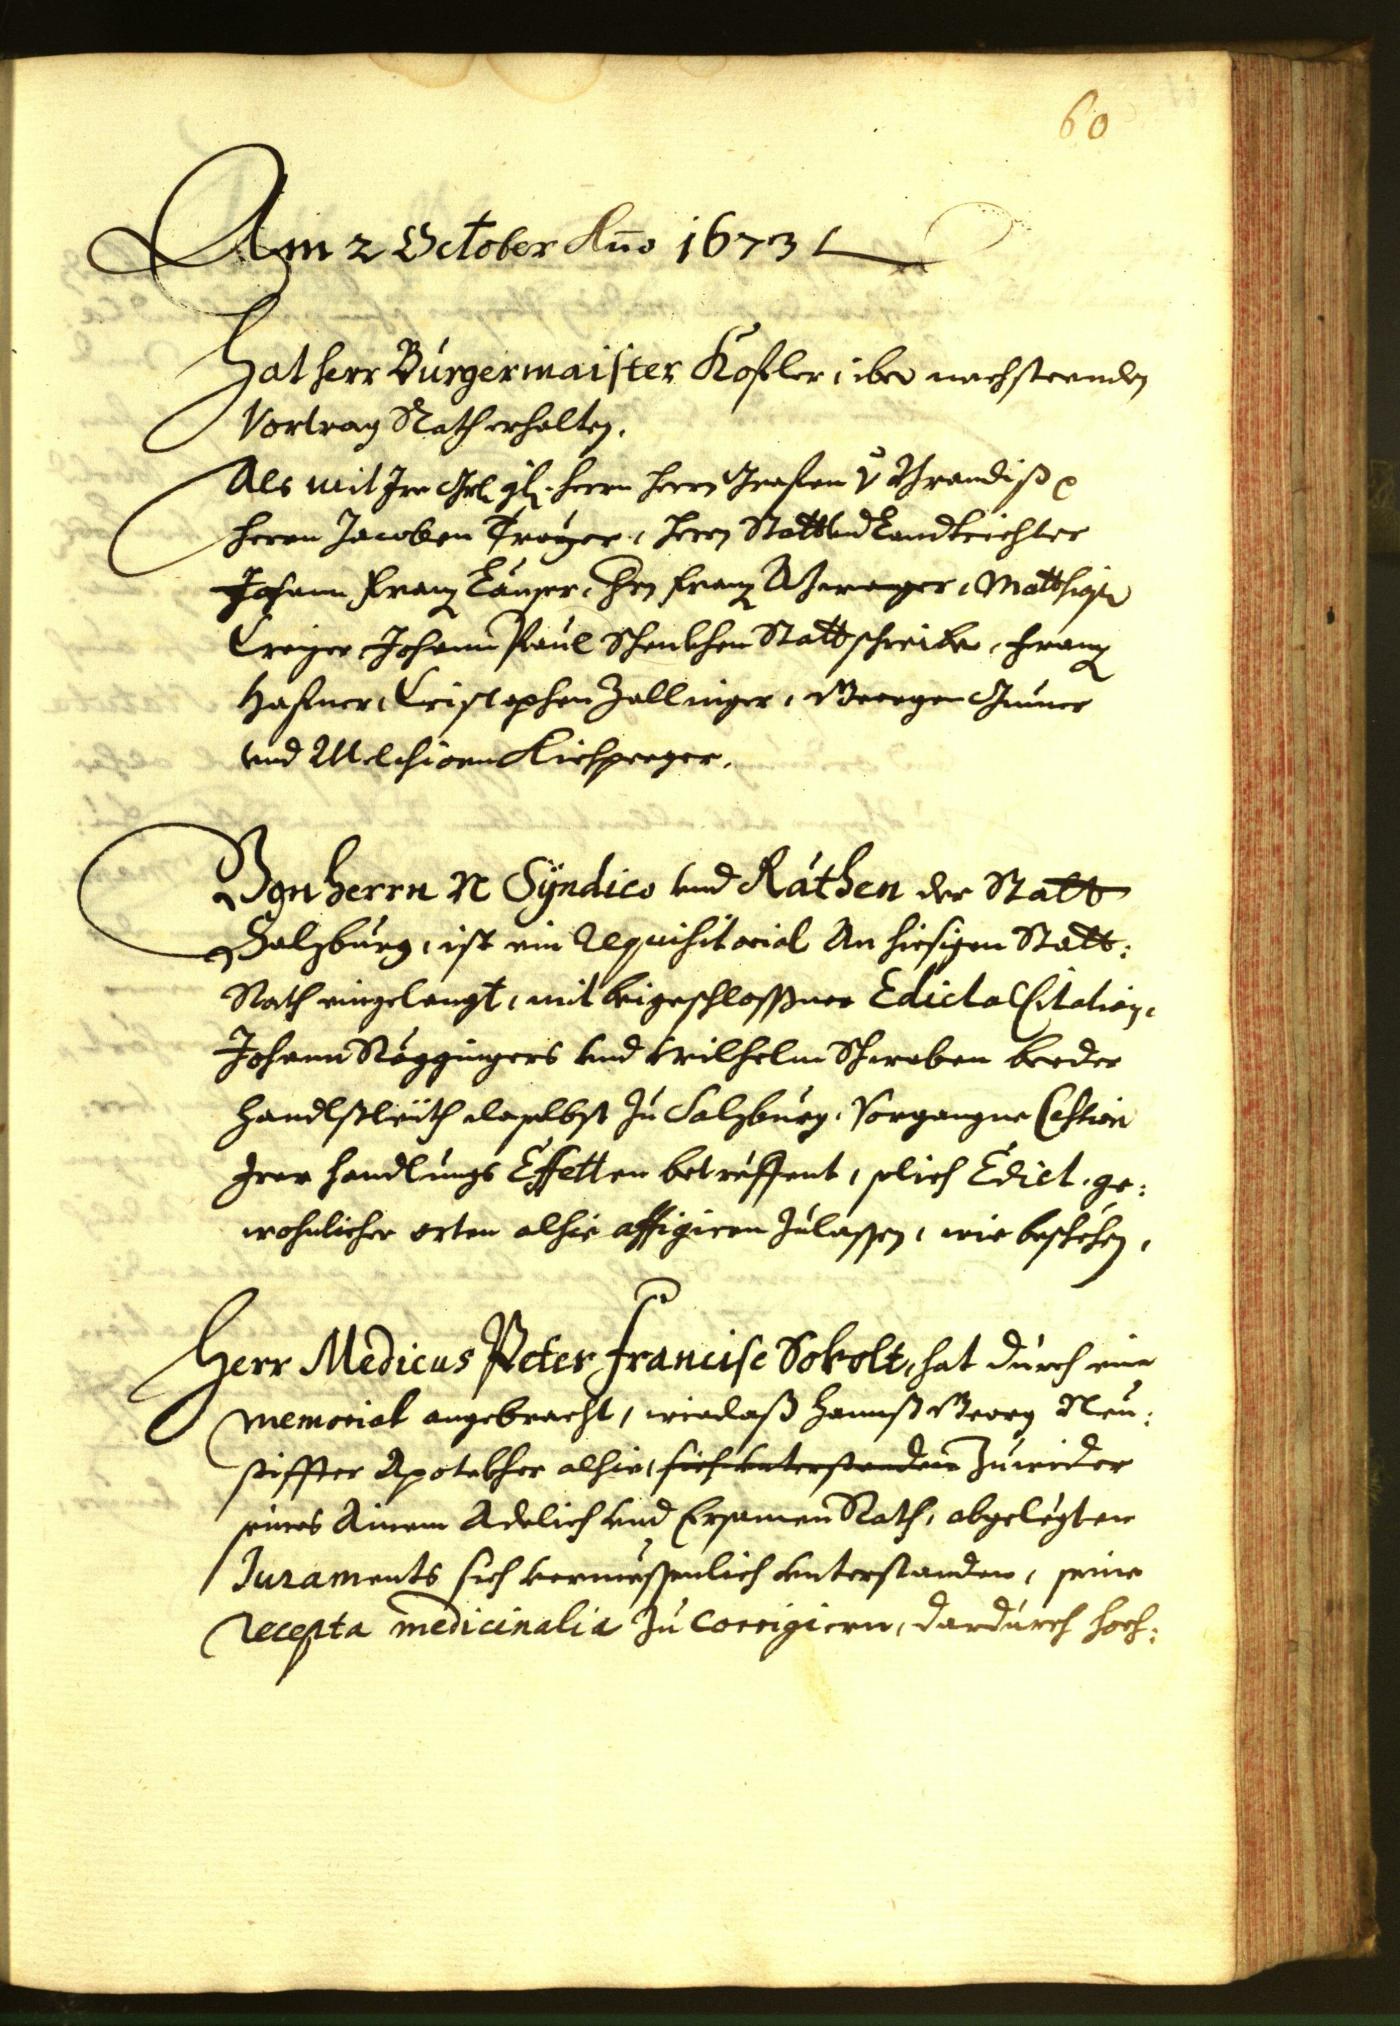 60
Am 2 October Año 1673
Hat herr Burgermaister Kofler, iber nachsteenden
Vortrag Rath erhalten.
Als mit Irn Gfl. gl. herrn herrn Grafen v Brandiß
herrn Jacoben Troyer, herrn Statt und Landtrichter
Johann Franz Franz Matthias
Creizer Johann Paul Schenkhen Stattschreiber, Franz
Hafner, Cristophen Zallinger, Georgen Gumer
und Melchiorn Kirchperger.
Von herrn N Syndico und Räthen der Statt
Salzburg, ist ein requisitorial An hiesigen Statt:
Rath eingelangt, mit beigeschlossner Edictal Citation,
Johann Röggingers und Wilhelm Schwaben beeder
Handlsleüth daselbst zu Salzburg, Vorgangne Cession
Irer Handlungs Effetten betreffent, solich Edict, ge:
wohnlicher orten alhie affigiren zulassen, wie beschehen,
Herr Medicus Peter Francisc Sokolt, hat durch ein
memorial angebracht, wiedaß Hannß Georg Neu:
stiffter Apotekher alhie, sich unterstanden zuwider
seines Ainem Adelich und Ersamen Rath, abgelegten
Juraments sich vermessenlich unterstanden, seine
recepta medicinalia zu corrigiern, dardurch hoch: